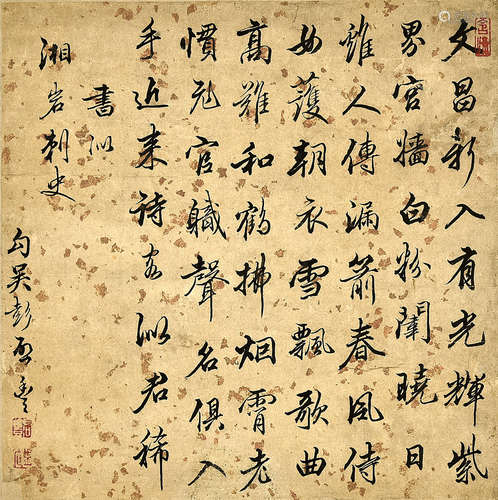 文昌新入有光輝紫
界宮墻白粉闈曉日
雞人傳漏箭春風侍
女護朝衣雪飄歌曲
高難和鶴拂烟霄老
慣飛官職聲名俱入
手近来詩客似君稀
書似
湘岩刺史
勾吴彭啓豐